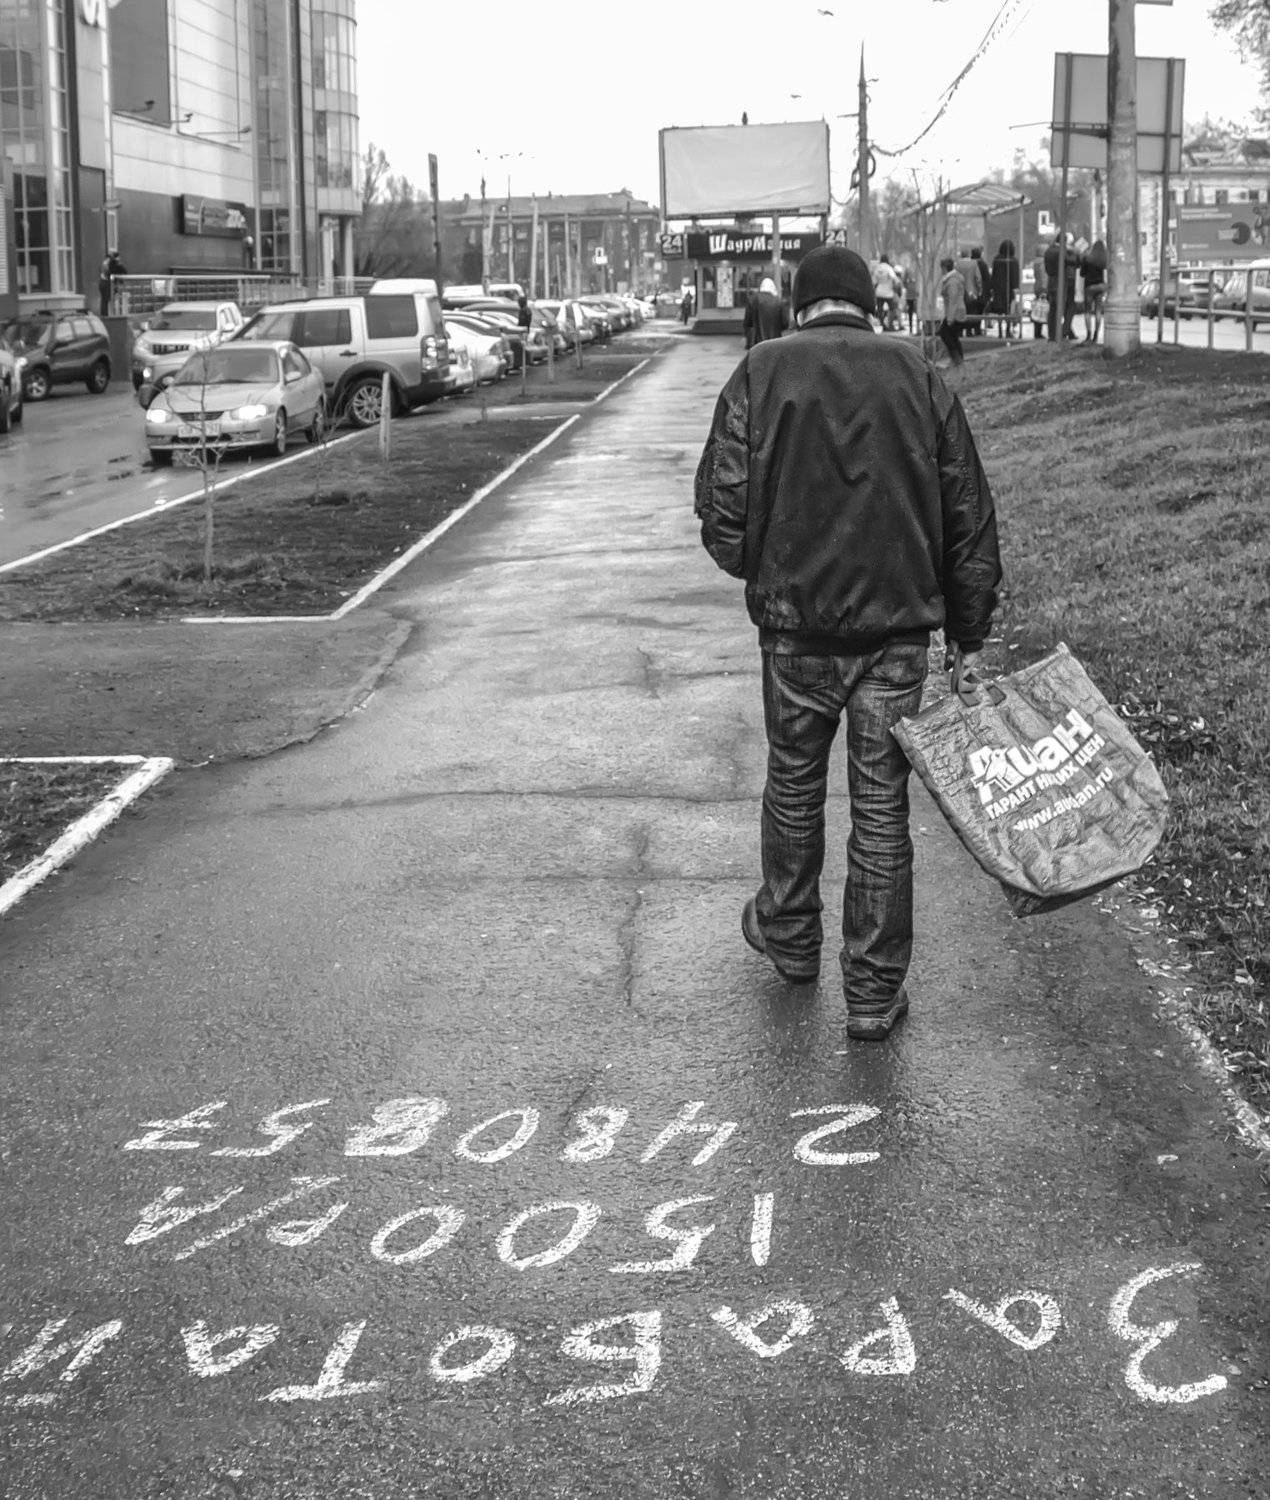 24 ШаурМания 24
Ашан
ГАРАНТ НИЗКИХ ЦЕН
www.auchan.ru
ЗаРаБоТаЙ
1500Р/Д
2480857